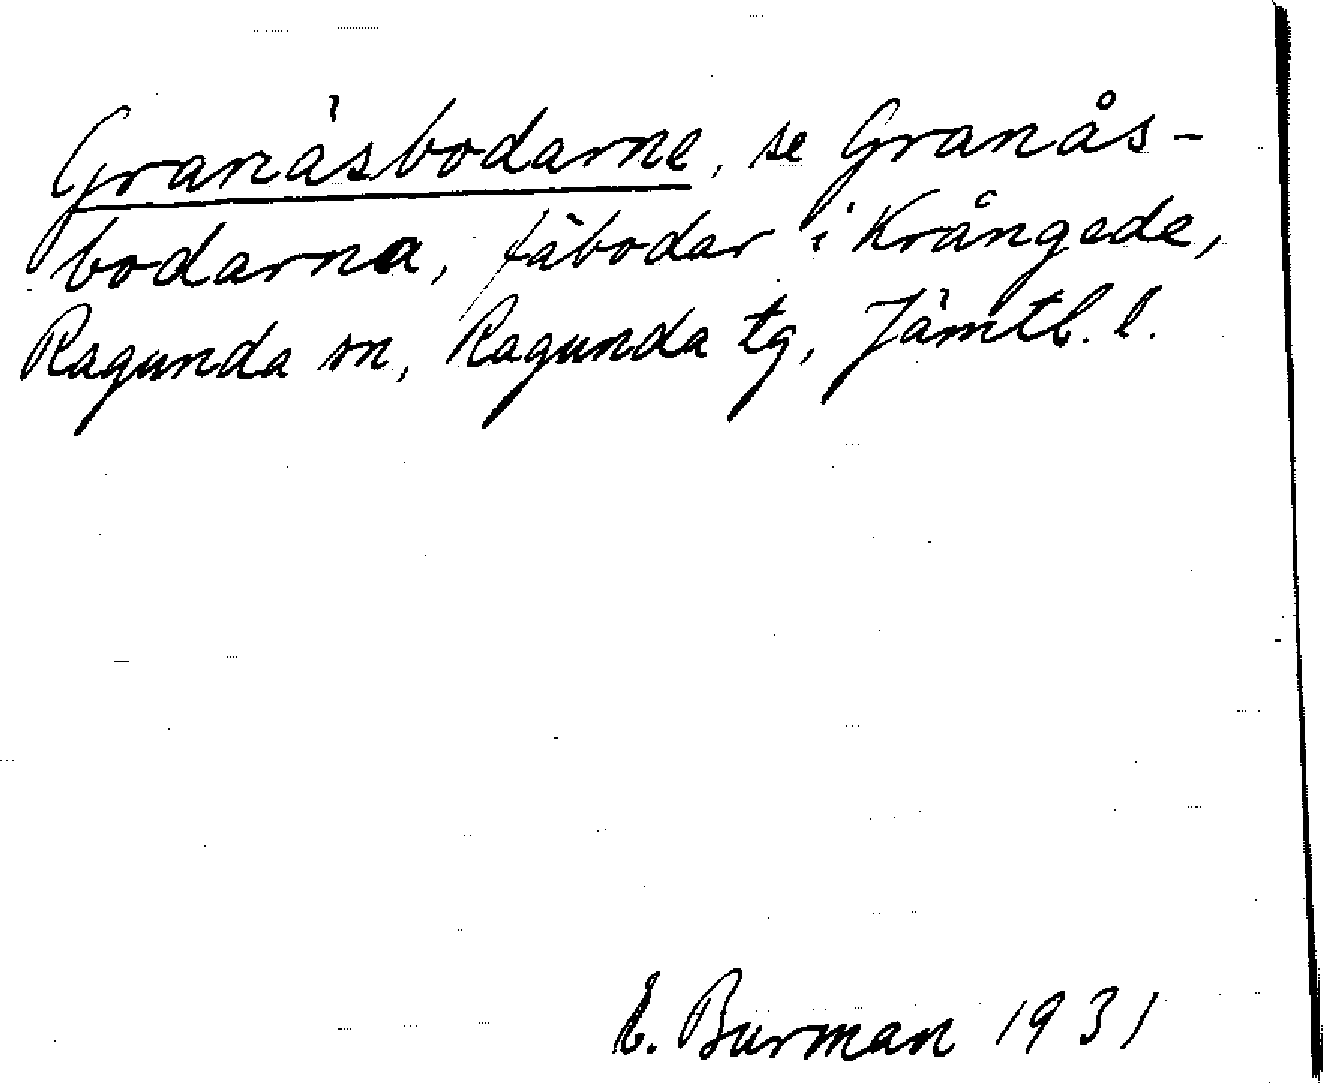 Granåsbodarne, se Granås-
bodarna, fäbodar i Krångede,
Ragunda sn, Ragunda tg, Jämtl. l.
E. Burman 1931